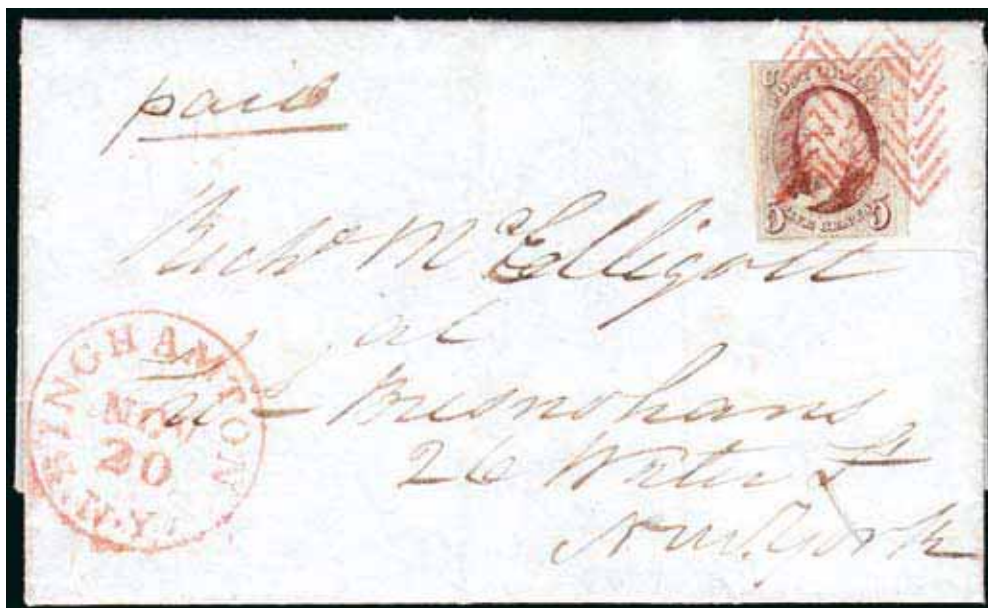 paid
POST OFFICE
5 FIVE CENTS 5
Richd McElligott
at
Mr Bresnohans
26 Water St
New York
BINGHAMTON
NOV
20
N.Y.